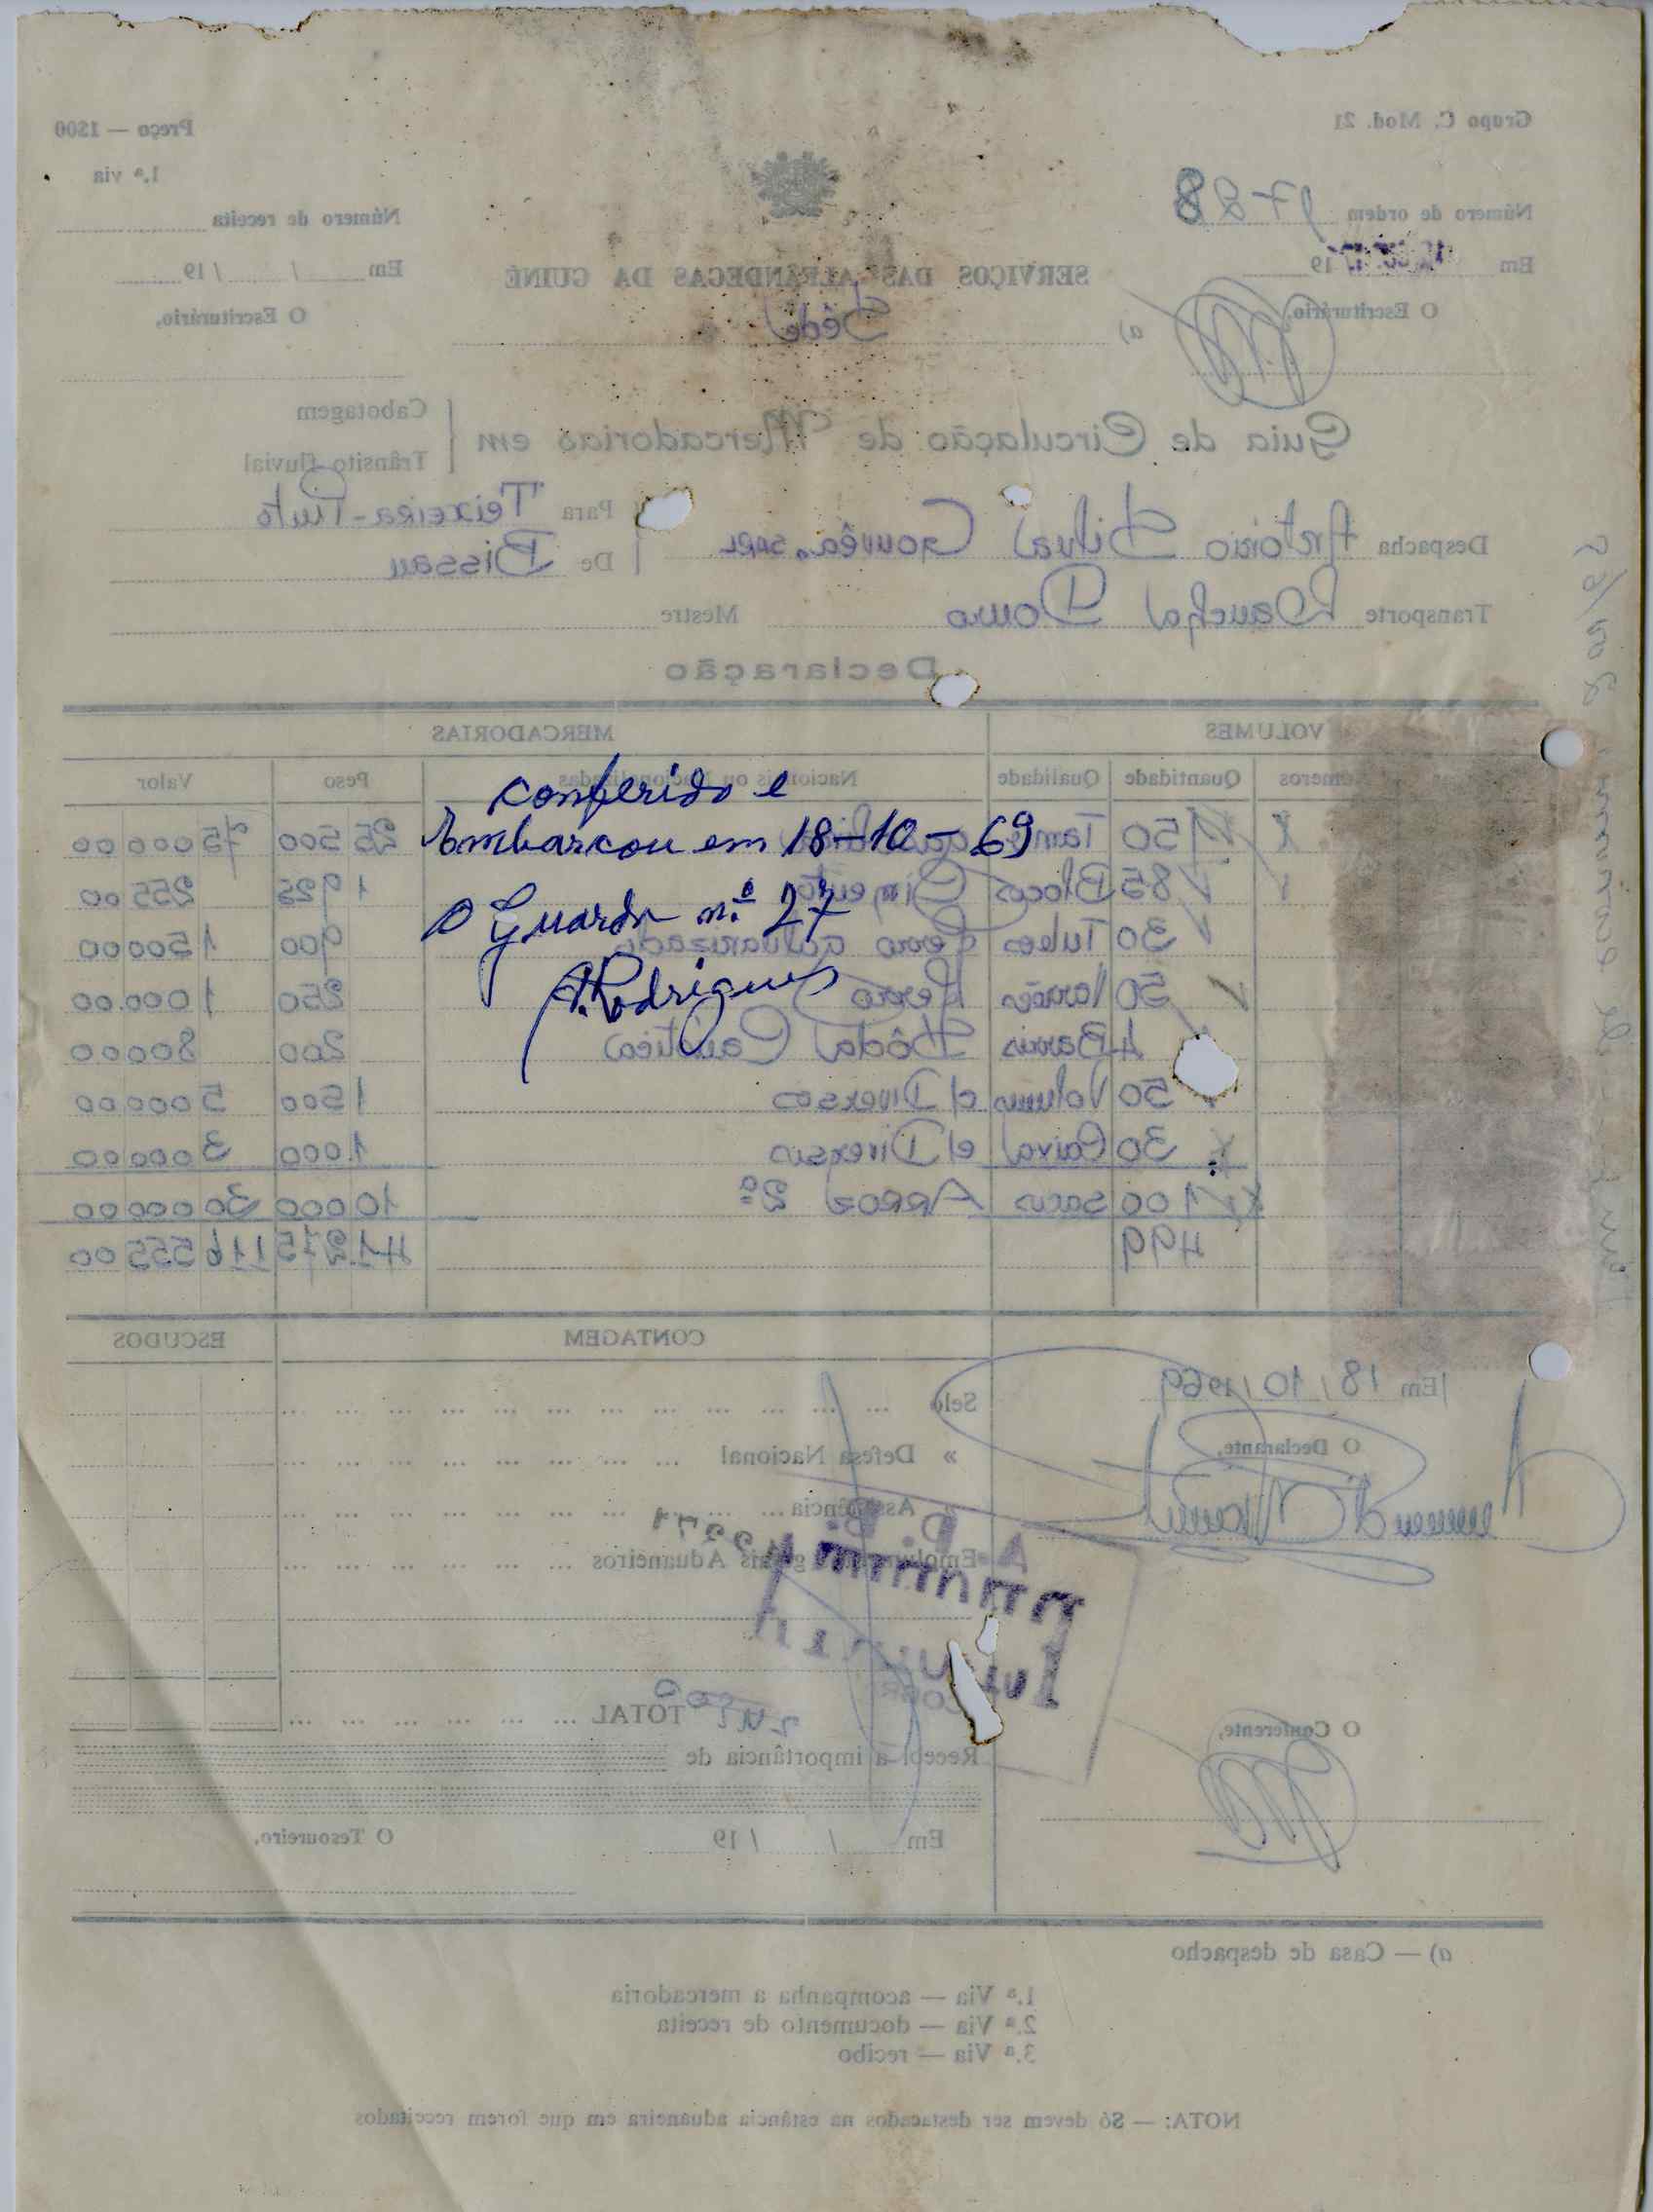 conferido e
Embarcou em 18-10-69
O Guarda n.º 27
A. Rodrigues
Grupo C. Mod. 21
Preço — 1$00
1.ª via
Número de ordem
Número de receita
Em 19
Em / / 19
O Escriturário,
O Escriturário,
SERVIÇOS DAS ALFÂNDEGAS DA GUINÉ
Séde
a)
Guia de Circulação de Mercadorias em
Cabotagem
Trânsito fluvial
Despacha António Silva Gouvêa, SARL
Para Teixeira-Pinto
De Bissau
Transporte Lancha Douro
Mestre
Declaração
VOLUMES MERCADORIAS
Números Quantidade Qualidade Nacionais ou Nacionalizadas Peso Valor
150 25 500 75 000 00
85 Blocos Cimento 1 925 255 00
30 Tubos Ferro 900 1 500 00
50 Varões Ferro 250 1 000 00
4 Barris Sóda Caústica 200 800 00
50 Volumes c/ Diversos 1 500 5 000 00
30 Caixa c/ Diversos 1.000 3 000 00
100 sacos Arroz 2ª 10 000 30 000 00
499 41 275 116 555 00
CONTAGEM ESCUDOS
Em 18/10/1969
O Declarante,
Selo
» Defesa Nacional
» Assistência
Emolumentos gerais Aduaneiros
TOTAL
O Conferente,
Recebi a importância de
Em / / 19
O Tesoureiro,
a) — Casa de despacho
1.ª Via — acompanha a mercadoria
2.ª Via — documento de receita
3.ª Via — recibo
NOTA: — Só devem ser destacados na estância aduaneira em que forem receitados